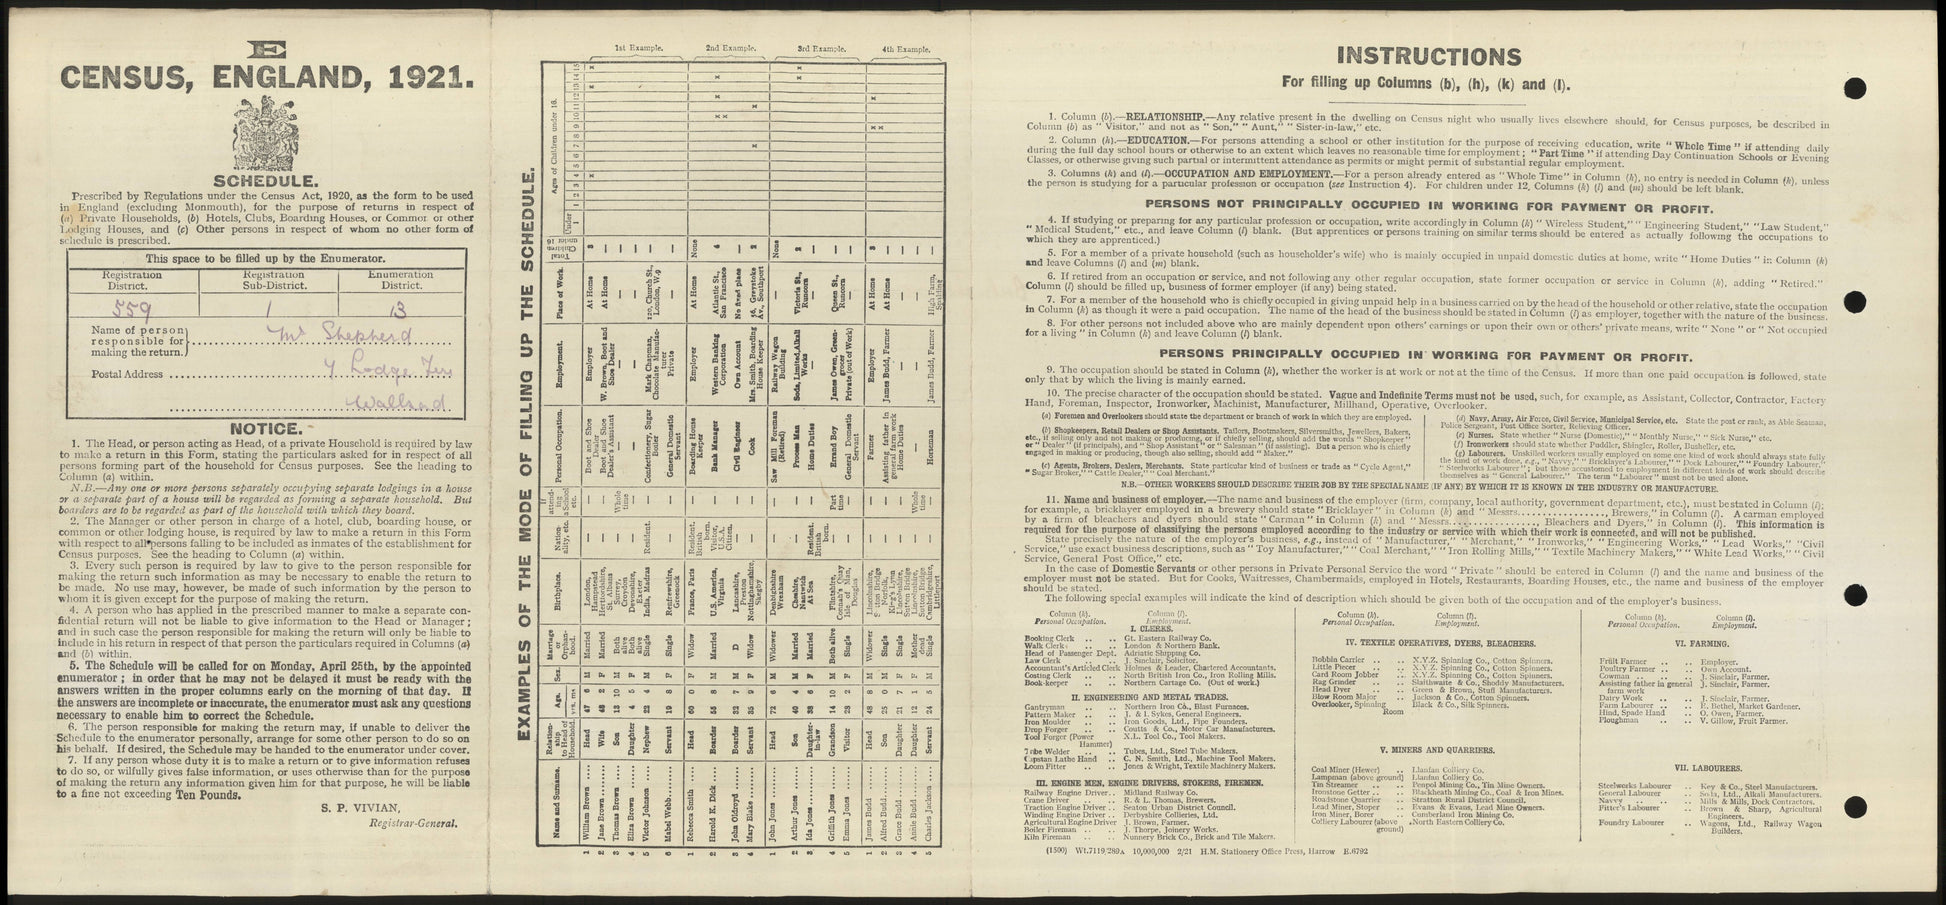 E
CENSUS, ENGLAND, 1921.
SCHEDULE.
Prescribed by Regulations under the Census Act, 1920, as the form to be used
in England (excluding Monmouth), for the purpose of returns in respect of
(a) Private Households, (b) Hotels, Clubs, Boarding Houses, or Common or other
Lodging Houses, and (c) Other persons in respect of whom no other form of
schedule is prescribed.
This space to be filled up by the Enumerator.
Registration District. Registration Sub-District. Enumeration District.
559 1 13
Name of person responsible for making the return. Mr Shepherd
Postal Address 7 Lodge Ter
Wallsend
NOTICE.
1. The Head, or person acting as Head, of a private Household is required by law
to make a return in this Form, stating the particulars asked for in respect of all
persons forming part of the household for Census purposes. See the heading to
Column (a) within.
N.B.—Any one or more persons separately occupying separate lodgings in a house
or a separate part of a house will be regarded as forming a separate household. But
boarders are to be regarded as part of the household with which they board.
2. The Manager or other person in charge of a hotel, club, boarding house, or
common or other lodging house, is required by law to make a return in this Form
with respect to all persons falling to be included as inmates of the establishment for
Census purposes. See the heading to Column (a) within.
3. Every such person is required by law to give to the person responsible for
making the return such information as may be necessary to enable the return to
be made. No use may, however, be made of such information by the person to
whom it is given except for the purpose of making the return.
4. A person who has applied in the prescribed manner to make a separate con-
fidential return will not be liable to give information to the Head or Manager;
and in such case the person responsible for making the return will only be liable to
include in his return in respect of that person the particulars required in Columns (a)
and (b) within.
5. The Schedule will be called for on Monday, April 25th, by the appointed
enumerator; in order that he may not be delayed it must be ready with the
answers written in the proper columns early on the morning of that day. If
the answers are incomplete or inaccurate, the enumerator must ask any questions
necessary to enable him to correct the Schedule.
6. The person responsible for making the return may, if unable to deliver the
Schedule to the enumerator personally, arrange for some other person to do so on
his behalf. If desired, the Schedule may be handed to the enumerator under cover.
7. If any person whose duty it is to make a return or to give information refuses
to do so, or wilfully gives false information, or uses otherwise than for the purpose
of making the return any information given him for that purpose, he will be liable
to a fine not exceeding Ten Pounds.
S. P. VIVIAN,
Registrar-General.
EXAMPLES OF THE MODE OF FILLING UP THE SCHEDULE.
1st Example. 2nd Example. 3rd Example. 4th Example.
Name and Surname. Relationship to Head of Household. Age. yrs. ms Sex. Marriage or Orphanhood. Birthplace. Nationality, etc. If attending a School etc. Personal Occupation. Employment. Place of Work. Total Children under 16 Ages of Children under 16.
Under 1 1 2 3 4 5 6 7 8 9 10 11 12 13 14 15
1 William Brown Head 47 6 M Married London, Hampstead — — Boot and Shoe Dealer Employer At Home 3
2 Jane Brown Wife 46 2 F Married Hertfordshire, St. Albans — — Boot and Shoe Dealer's Assistant W. Brown, Boot and Shoe Dealer At Home —
3 Thomas Brown Son 13 10 M Both alive Surrey, Croydon — Whole time — — — —
4 Eliza Brown Daughter 4 5 F Both alive Devonshire, Exeter — — — — — —
5 Victor Johnson Nephew 22 4 M Single India, Madras Resident. — Confectionery, Sugar Boiler Mark Chapman, Chocolate Manufacturer 120, Church St., London, W.9 —
6 Mabel Webb Servant 19 8 F Single Renfrewshire, Greenock — — General Domestic Servant Private — —
1 Rebecca Smith Head 60 0 F Widow France, Paris Resident. British born. — Boarding House Keeper Employer At Home None
2 Harold K. Dick Boarder 55 8 M Married U.S. America, Virginia Visitor, U.S.A. Citizen. — Bank Manager Western Banking Corporation Atlantic St., San Francisco 4
3 John Oldroyd Boarder 32 7 M D Lancashire, Preston — — Civil Engineer Own Account No fixed place —
4 Mary Blake Servant 35 9 F Widow Nottinghamshire, Skegby — — Cook Mrs. Smith, Boarding House Keeper 56, Greystoke Av., Southport 2
1 John Jones Head 72 6 M Widower Denbighshire Wrexham — — Saw Mill Foreman (Retired) Railway Wagon Building — None
2 Arthur Jones Son 40 4 M Married Cheshire, Nantwich — — Process Man Soda, Limited, Alkali Works Victoria St., Runcorn 2
3 Ida Jones Daughter-in-law 38 6 F Married At Sea Resident. British born. — Home Duties — — —
4 Griffith Jones Grandson 14 10 M Both alive Flintshire, Connah's Quay — Part time Errand Boy James Owen, Greengrocer Queen St., Runcorn —
5 Emma Jones Visitor 28 2 F Single Isle of Man, Douglas — — General Domestic Servant Private (out of Work) — —
1 James Budd Head 48 8 M Widower Lincolnshire, Sutton Bridge — — Farmer Employer At Home 3
2 Alfred Budd Son 25 0 M Single Norfolk, King's Lynn — — Assisting father in general farm work James Budd, Farmer At Home —
3 Grace Budd Daughter 21 7 F Single Lincolnshire, Sutton Bridge — — Home Duties — — —
4 Annie Budd Daughter 12 1 F Mother dead Lincolnshire, Sutton Bridge — Whole time — — — —
5 Charles Jackson Servant 24 5 M Single Cambridgeshire, Littleport — — Horseman James Budd, Farmer High Farm, Spalding —
INSTRUCTIONS
For filling up Columns (b), (h), (k) and (l).
1. Column (b).—RELATIONSHIP.—Any relative present in the dwelling on Census night who usually lives elsewhere should, for Census purposes, be described in
Column (b) as "Visitor," and not as "Son," "Aunt," "Sister-in-law," etc.
2. Column (h).—EDUCATION.—For persons attending a school or other institution for the purpose of receiving education, write "Whole Time" if attending daily
during the full day school hours or otherwise to an extent which leaves no reasonable time for employment; "Part Time" if attending Day Continuation Schools or Evening
Classes, or otherwise giving such partial or intermittent attendance as permits or might permit of substantial regular employment.
3. Columns (k) and (l).—OCCUPATION AND EMPLOYMENT.—For a person already entered as "Whole Time" in Column (h), no entry is needed in Column (k), unless
the person is studying for a particular profession or occupation (see Instruction 4). For children under 12, Columns (k) (l) and (m) should be left blank.
PERSONS NOT PRINCIPALLY OCCUPIED IN WORKING FOR PAYMENT OR PROFIT.
4. If studying or preparing for any particular profession or occupation, write accordingly in Column (k) "Wireless Student," "Engineering Student," "Law Student,"
"Medical Student," etc., and leave Column (l) blank. (But apprentices or persons training on similar terms should be entered as actually following the occupations to
which they are apprenticed.)
5. For a member of a private household (such as householder's wife) who is mainly occupied in unpaid domestic duties at home, write "Home Duties" in Column (k)
and leave Columns (l) and (m) blank.
6. If retired from an occupation or service, and not following any other regular occupation, state former occupation or service in Column (k), adding "Retired."
Column (l) should be filled up, business of former employer (if any) being stated.
7. For a member of the household who is chiefly occupied in giving unpaid help in a business carried on by the head of the household or other relative, state the occupation
in Column (k) as though it were a paid occupation. The name of the head of the business should be stated in Column (l) as employer, together with the nature of the business.
8. For other persons not included above who are mainly dependent upon others' earnings or upon their own or others' private means, write "None" or "Not occupied
for a living" in Column (k) and leave Column (l) blank.
PERSONS PRINCIPALLY OCCUPIED IN WORKING FOR PAYMENT OR PROFIT.
9. The occupation should be stated in Column (k), whether the worker is at work or not at the time of the Census. If more than one paid occupation is followed, state
only that by which the living is mainly earned.
10. The precise character of the occupation should be stated. Vague and Indefinite Terms must not be used, such, for example, as Assistant, Collector, Contractor, Factory
Hand, Foreman, Inspector, Ironworker, Machinist, Manufacturer, Millhand, Operative, Overlooker.
(a) Foremen and Overlookers should state the department or branch of work in which they are employed.
(b) Shopkeepers, Retail Dealers or Shop Assistants. Tailors, Bootmakers, Silversmiths, Jewellers, Bakers,
etc., if selling only and not making or producing, or if chiefly selling, should add the words "Shopkeeper"
or "Dealer" (if principals), and "Shop Assistant" or "Salesman" (if assisting). But a person who is chiefly
engaged in making or producing, though also selling, should add "Maker."
(c) Agents, Brokers, Dealers, Merchants. State particular kind of business or trade as "Cycle Agent,"
"Sugar Broker," "Cattle Dealer," "Coal Merchant."
(d) Navy, Army, Air Force, Civil Service, Municipal Service, etc. State the post or rank, as Able Seaman,
Police Sergeant, Post Office Sorter, Relieving Officer.
(e) Nurses. State whether "Nurse (Domestic)," "Monthly Nurse," "Sick Nurse," etc.
(f) Ironworkers should state whether Puddler, Shingler, Roller, Busheller, etc.
(g) Labourers. Unskilled workers usually employed on some one kind of work should always state fully
the kind of work done, e.g., "Navvy," "Bricklayer's Labourer," "Dock Labourer," "Foundry Labourer,"
"Steelworks Labourer"; but those accustomed to employment in different kinds of work should describe
themselves as "General Labourer." The term "Labourer" must not be used alone.
N.B.—OTHER WORKERS SHOULD DESCRIBE THEIR JOB BY THE SPECIAL NAME (IF ANY) BY WHICH IT IS KNOWN IN THE INDUSTRY OR MANUFACTURE.
11. Name and business of employer.—The name and business of the employer (firm, company, local authority, government department, etc.), must be stated in Column (l);
for example, a bricklayer employed in a brewery should state "Bricklayer" in Column (k) and "Messrs..............., Brewers," in Column (l). A carman employed
by a firm of bleachers and dyers should state "Carman" in Column (k) and "Messrs..............., Bleachers and Dyers," in Column (l). This information is
required for the purpose of classifying the persons employed according to the industry or service with which their work is connected, and will not be published.
State precisely the nature of the employer's business, e.g., instead of "Manufacturer," "Merchant," "Ironworks," "Engineering Works," "Lead Works," "Civil
Service," use exact business descriptions, such as "Toy Manufacturer," "Coal Merchant," "Iron Rolling Mills," "Textile Machinery Makers," "White Lead Works," "Civil
Service, General Post Office," etc.
In the case of Domestic Servants or other persons in Private Personal Service the word "Private" should be entered in Column (l) and the name and business of the
employer must not be stated. But for Cooks, Waitresses, Chambermaids, employed in Hotels, Restaurants, Boarding Houses, etc., the name and business of the employer
should be stated.
The following special examples will indicate the kind of description which should be given both of the occupation and of the employer's business.
Column (k). Personal Occupation. Column (l). Employment.
I. CLERKS.
Booking Clerk .. .. Gt. Eastern Railway Co.
Walk Clerk .. .. London & Northern Bank.
Head of Passenger Dept. Adriatic Shipping Co.
Law Clerk .. .. J. Sinclair, Solicitor.
Accountant's Articled Clerk Holmes & Leader, Chartered Accountants.
Costing Clerk .. .. North British Iron Co., Iron Rolling Mills.
Book-keeper .. .. Northern Cartage Co. (Out of work.)
II. ENGINEERING AND METAL TRADES.
Gantryman .. .. Northern Iron Co., Blast Furnaces.
Pattern Maker .. .. J. & I. Sykes, General Engineers.
Iron Moulder .. .. Iron Goods, Ltd., Pipe Founders.
Drop Forger .. .. Coutts & Co., Motor Car Manufacturers.
Tool Forger (Power Hammer) X.L. Tool Co., Tool Makers.
Tube Welder .. .. Tubes, Ltd., Steel Tube Makers.
Capstan Lathe Hand .. C. N. Smith, Ltd., Machine Tool Makers.
Loom Fitter .. .. Jones & Wright, Textile Machinery Makers.
III. ENGINE MEN, ENGINE DRIVERS, STOKERS, FIREMEN.
Railway Engine Driver .. Midland Railway Co.
Crane Driver .. .. R. & L. Thomas, Brewers.
Traction Engine Driver .. Seaton Urban District Council.
Winding Engine Driver .. Derbyshire Collieries, Ltd.
Agricultural Engine Driver J. Brown, Farmer.
Boiler Fireman .. .. J. Thorpe, Joinery Works.
Kiln Fireman .. .. Nunnery Brick Co., Brick and Tile Makers.
Column (k). Personal Occupation. Column (l). Employment.
IV. TEXTILE OPERATIVES, DYERS, BLEACHERS.
Bobbin Carrier .. .. X.Y.Z. Spinning Co., Cotton Spinners.
Little Piecer .. .. X.Y.Z. Spinning Co., Cotton Spinners.
Card Room Jobber .. X.Y.Z. Spinning Co., Cotton Spinners.
Rag Grinder .. .. Slaithwaite & Co., Shoddy Manufacturers.
Head Dyer .. .. Green & Brown, Stuff Manufacturers.
Blow Room Major .. Jackson & Co., Cotton Spinners.
Overlooker, Spinning Room Black & Co., Silk Spinners.
V. MINERS AND QUARRIERS.
Coal Miner (Hewer) .. Llanfan Colliery Co.
Lampman (above ground) Llanfan Colliery Co.
Tin Streamer .. .. Penpol Mining Co., Tin Mine Owners.
Ironstone Getter .. .. Blackheath Mining Co., Coal & Iron Mines.
Roadstone Quarrier .. Stratton Rural District Council.
Lead Miner, Stoper .. Evans & Evans, Lead Mine Owners.
Iron Miner, Borer .. Cumberland Iron Mining Co.
Colliery Labourer (above ground) North Eastern Colliery Co.
Column (k). Personal Occupation. Column (l). Employment.
VI. FARMING.
Fruit Farmer .. .. Employer.
Poultry Farmer .. .. Own Account.
Cowman .. .. J. Sinclair, Farmer.
Assisting father in general farm work J. Sinclair, Farmer.
Dairy Work .. .. J. Sinclair, Farmer.
Farm Labourer .. .. E. Bethel, Market Gardener.
Hind, Spade Hand .. O. Owen, Farmer.
Ploughman .. .. V. Gillow, Fruit Farmer.
VII. LABOURERS.
Steelworks Labourer .. Key & Co., Steel Manufacturers.
General Labourer .. Soda, Ltd., Alkali Manufacturers.
Navvy .. .. Mills & Mills, Dock Contractors.
Fitter's Labourer .. Brown & Sharp, Agricultural Engineers.
Foundry Labourer .. Wagons, Ltd., Railway Wagon Builders.
(1500) Wt.7119/289A 10,000,000 2/21 H.M. Stationery Office Press, Harrow E.6792